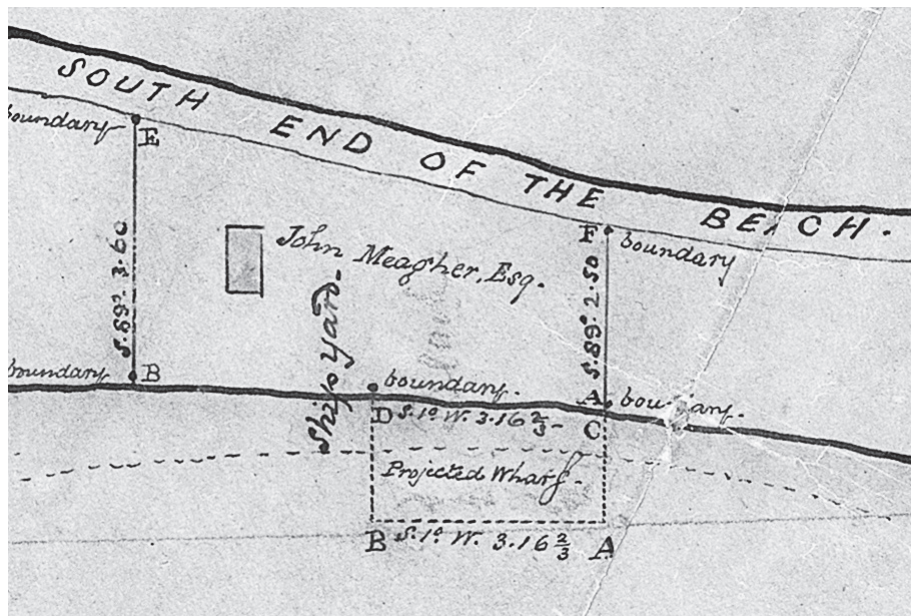 SOUTH END OF THE BEACH.
boundary
E
F boundary
John Meagher, Esq.
S. 89° 3.60
S. 89° 2.50
Ship Yard
boundary B
boundary.
A boundary.
D S. 1° W. 3.16 2/3
C
Projected Wharf.
B S. 1° W. 3.16 2/3 A